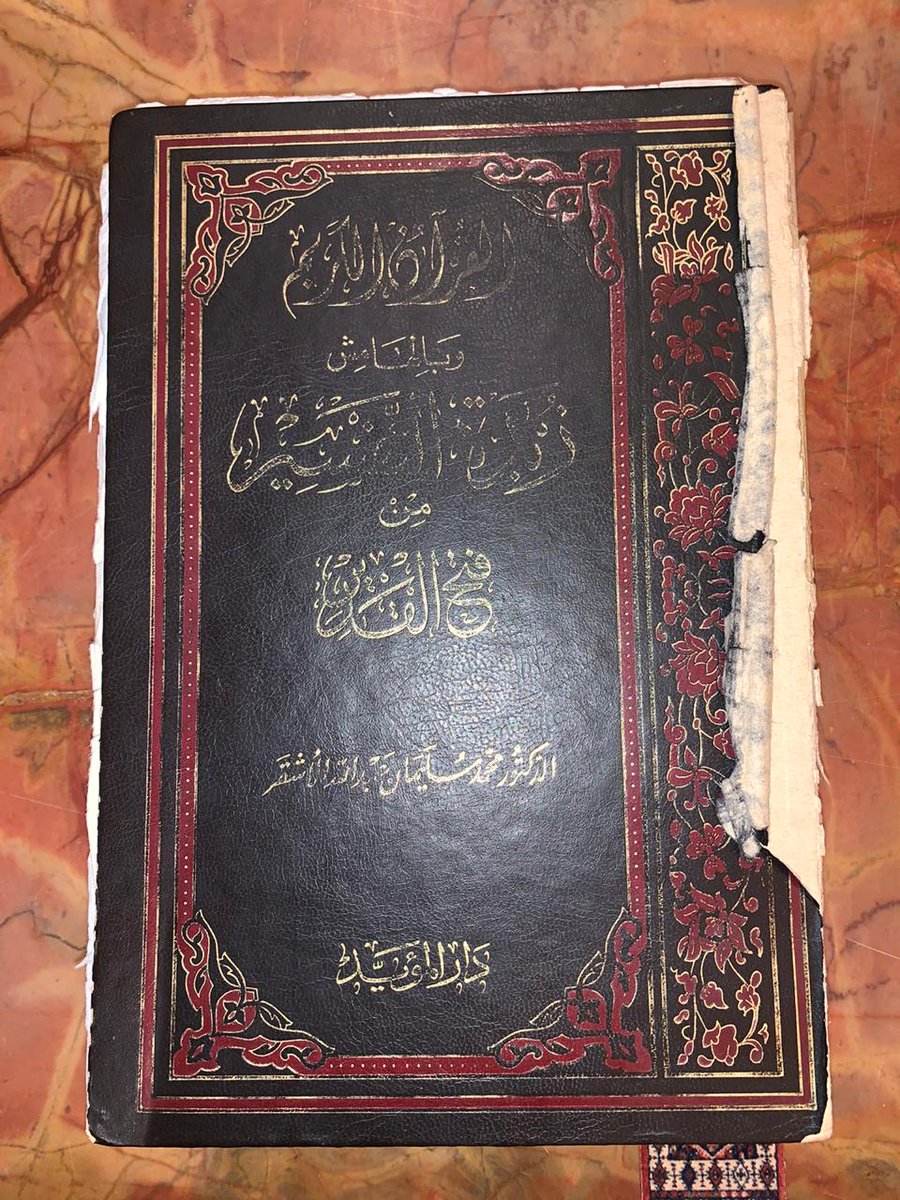 القرآن الكريم
وبالهامش
زُبدَة التَّفسِير
مِن
فتح القدير
الدكتور محمد سليمان عبدالله الأشقر
دَار المؤيَّد